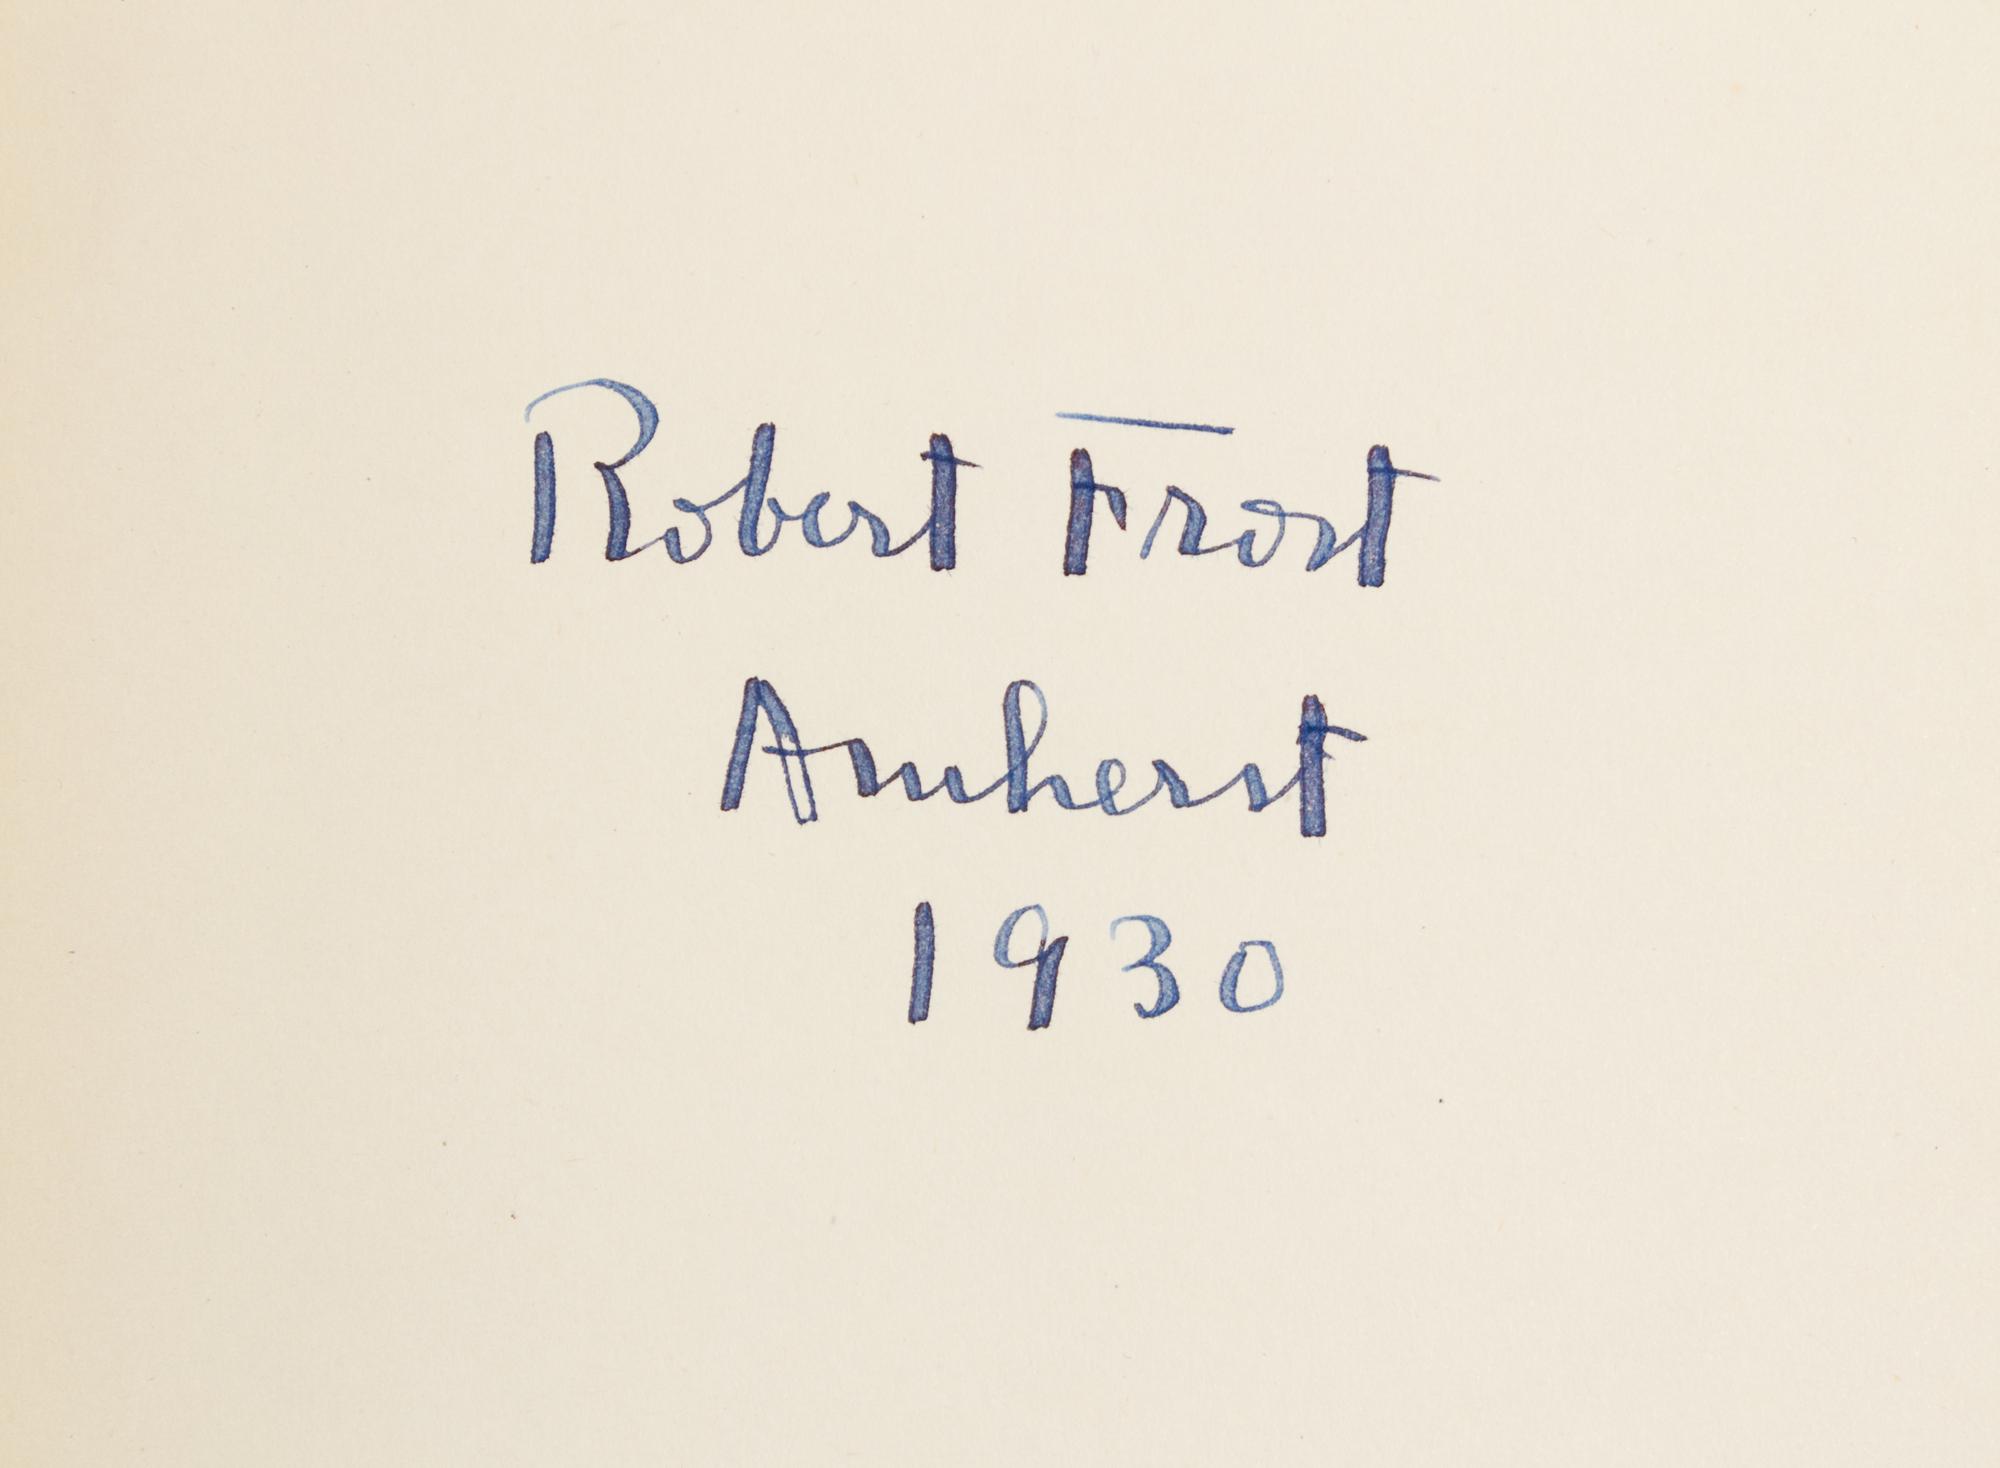 Robert Frost
Amherst
1930